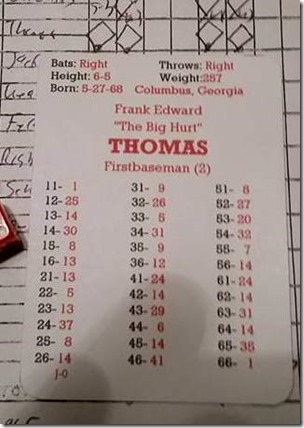 Bats: Right Throws: Right
Height: 6-5 Weight:257
Born: 5-27-68 Columbus, Georgia
Frank Edward
"The Big Hurt"
THOMAS
Firstbaseman (2)
11- 1 31- 9 51- 8
12- 25 32- 26 52- 27
13- 14 33- 5 53- 20
14- 30 34- 31 54- 32
15- 8 35- 9 55- 7
16- 13 36- 12 56- 14
21- 13 41- 24 61- 24
22- 5 42- 14 62- 14
23- 13 43- 29 63- 31
24- 37 44- 6 64- 14
25- 8 45- 14 65- 38
26- 14 46- 41 66- 1
J-0